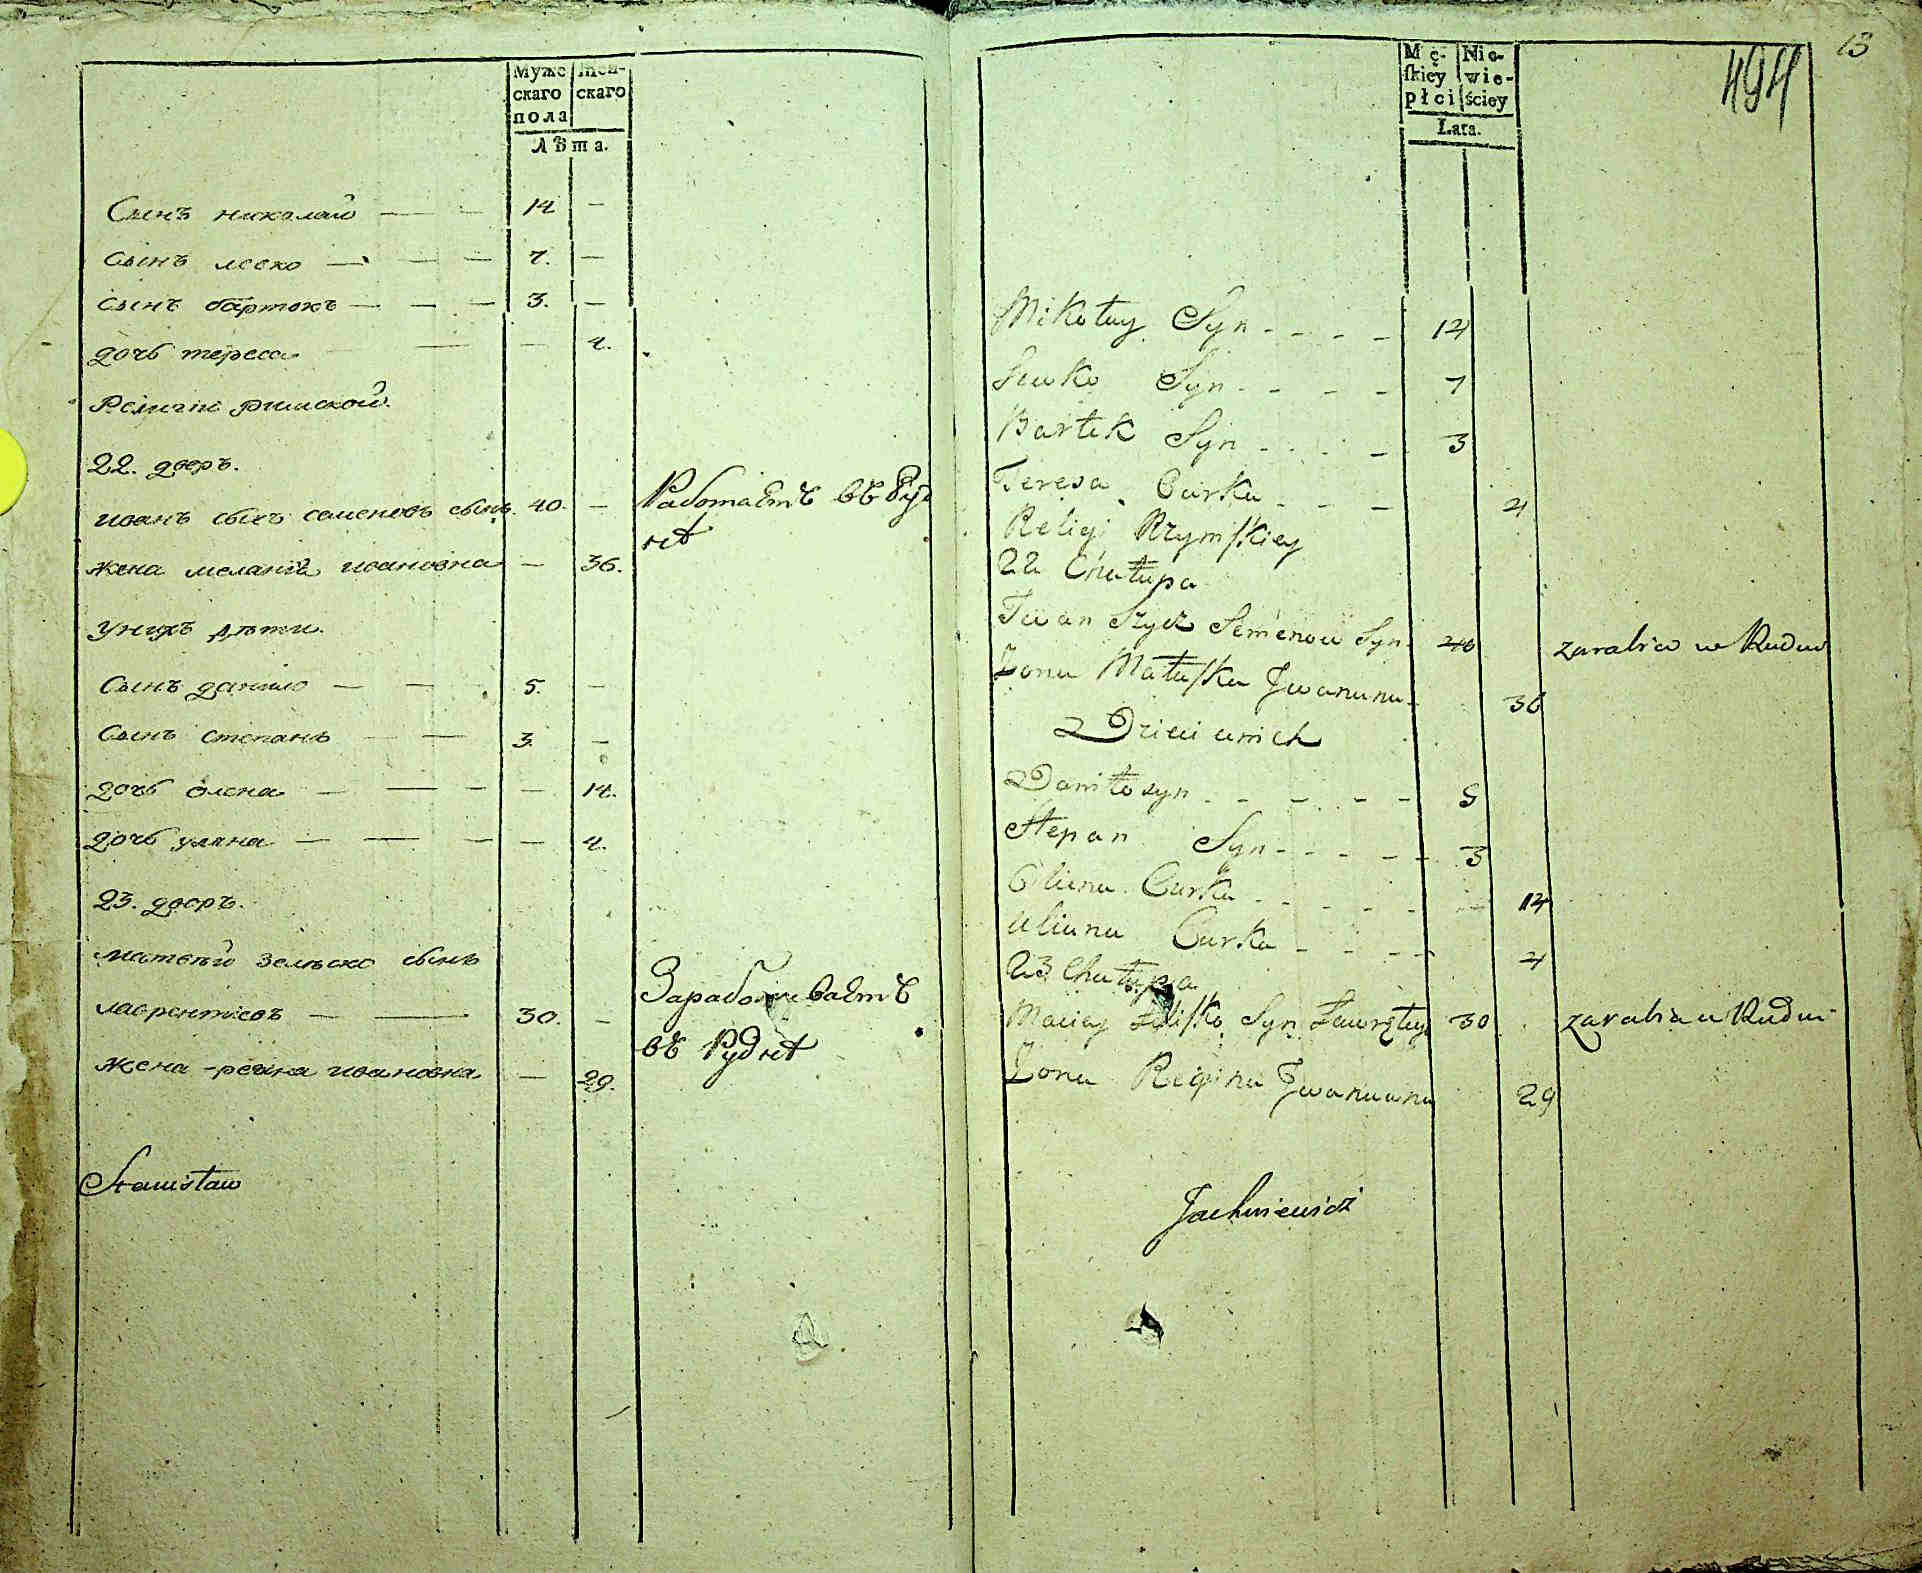 Муже
скаго
пола
Жен-
скаго
Лѣта.
Сынъ николай — — 14 —
Сынъ левко — — — 7. —
Сынъ бартокъ — — — 3. —
дочь тереса — — — 4.
Религіи римской.
22. дворъ.
иванъ сычъ семеновъ сынъ. 40. —
Работаетъ въ Руд
нѣ
жена меланіа ивановна — 36.
у нихъ дѣти.
Сынъ данило — — 5. —
Сынъ степанъ — — 3. —
дочь олена — — — — 14.
дочь уляна — — — — 4.
23. дворъ.
матвѣй зелѣско сынъ
лаврентіевъ — — 30. —
Зараболиваетъ
въ Руднѣ
жена регина ивановна — 29.
Stanisław
13
494
Mę-
ſkiey
płci
Nie-
wie-
ściey
Lata.
Mikołay Syn - - - - 14
Lewko Syn - - - - 7
Bartek Syn - - - - 3
Teresa Curka - - - 4
Religi Rzymſkiey
22 Chałupa
Iwan Szycz Semenow Syn. 40 zarabia w Rudni
Żona Małaſka Jwanuwna 36
Dzieci u nich
Daniło syn - - - - - 5
Stepan Syn - - - - - 3
Oliana Curka - - - - - 14
Uliana Curka - - - - - 4
23 Chałupa
Maciey Syn Ławręty 30 zarabia w Rudni
Żona Regina Jwanuwna 29
Jachniewicz